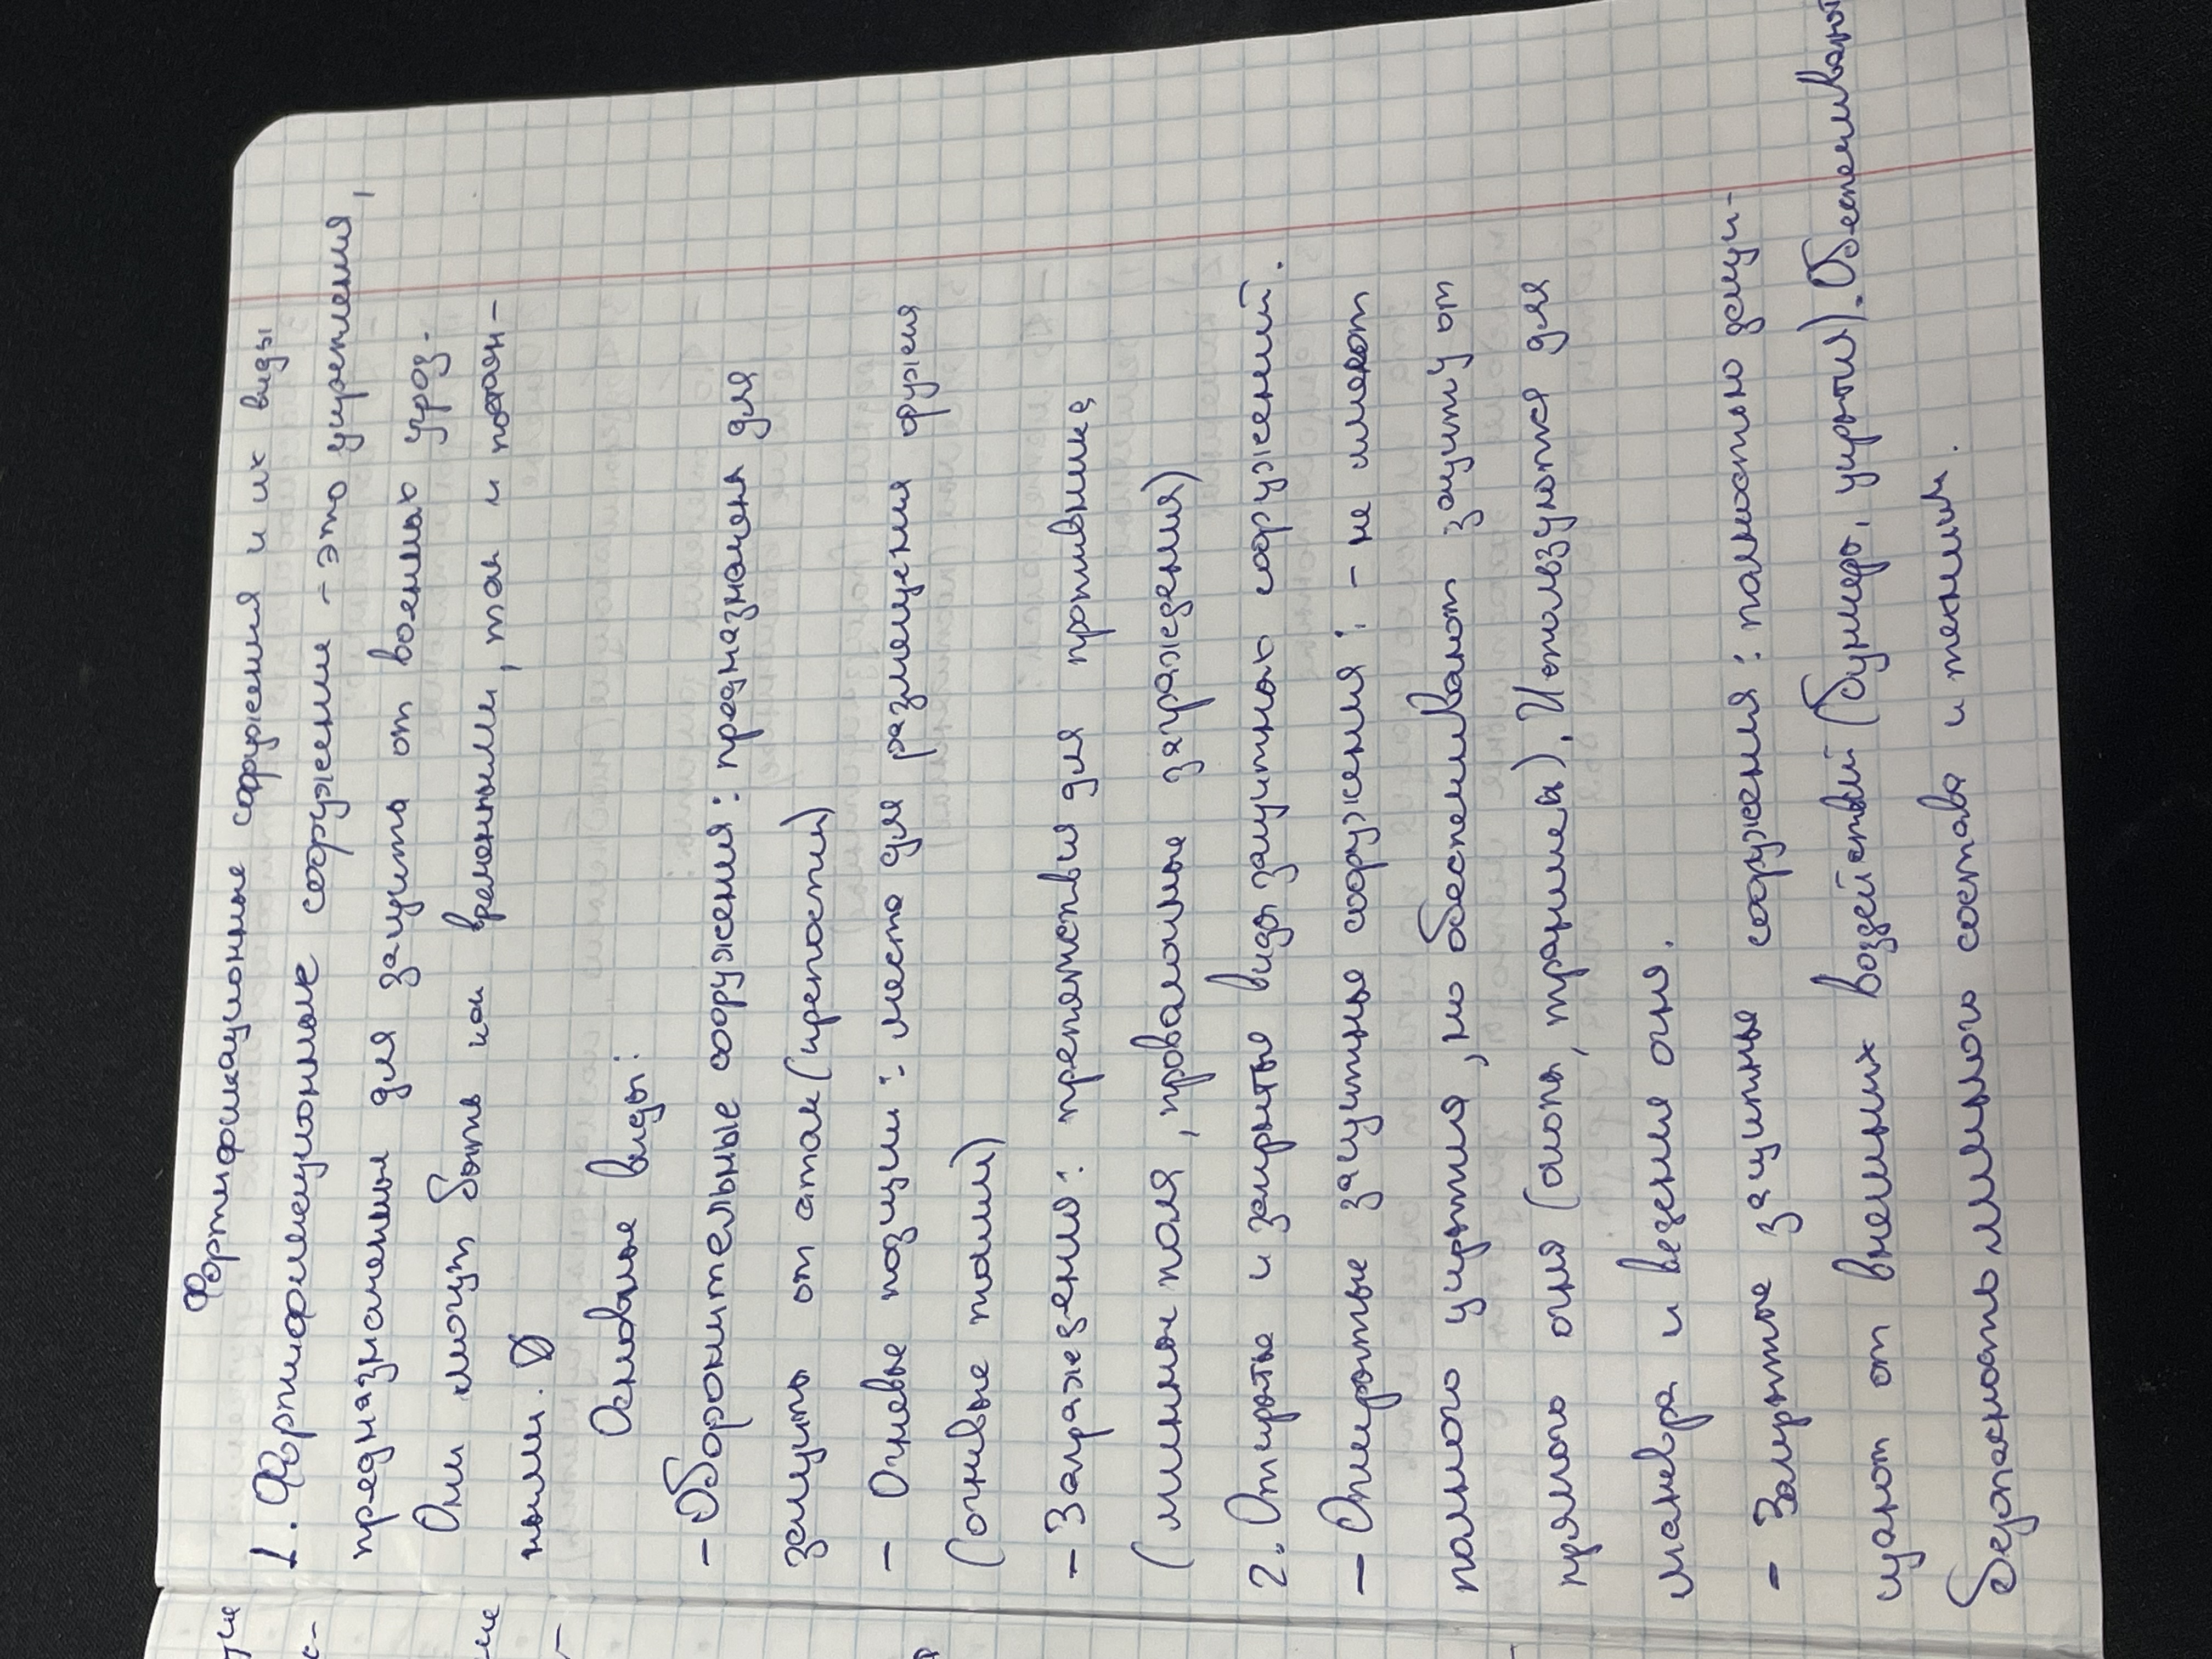 Фортификационные сооружения и их виды
1. Фортификационные сооружение - это укрепления,
предназначенные для защиты от военных угроз.
Они могут быть как временными, так и постоян-
ными.
Основные виды:
- Оборонительные сооружения: предназначен для
защиты от атак (крепости)
- Огневые позиции: место для размещения оружия
(огневые точки)
- Заграждению: препятствия для противника
(минные поля, проволочные заграждения)
2. Открытые и закрытые виды защитных сооружений.
- Открытые защитные сооружения: - не имеют
полного укрытия, но обеспечивают защиту от
прямого огня (окопы, траншеи). Используются для
маневра и ведения огня.
- Закрытые защитные сооружения: полностью защи-
щают от внешних воздействий (бункеры, укрытия). Обеспечивают
безопасность личного состава и техники.